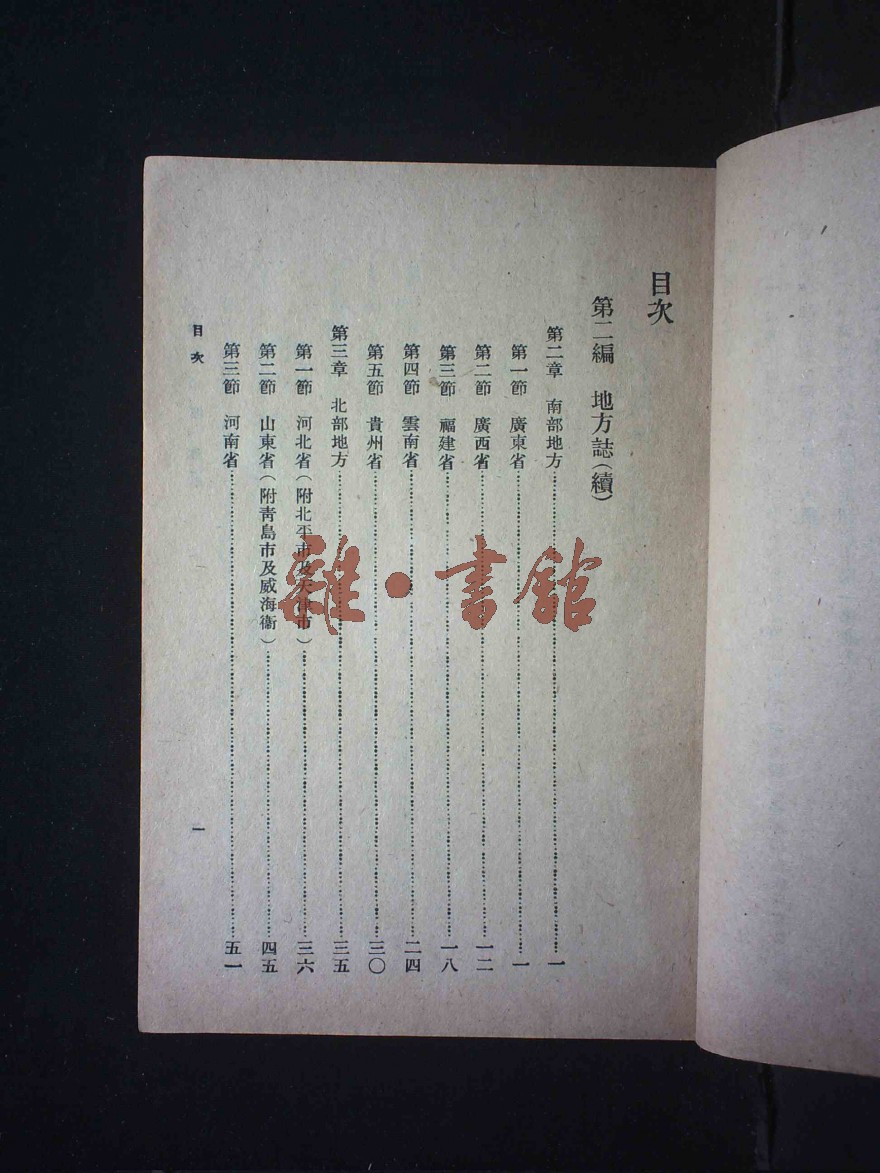 目次
第二編　地方誌（續）
第二章　南部地方……一
第一節　廣東省……一
第二節　廣西省……一二
第三節　福建省……一八
第四節　雲南省……二四
第五節　貴州省……三〇
第三章　北部地方……三五
第一節　河北省（附北平市及天津市）……三六
第二節　山東省（附靑島市及威海衞）……四五
第三節　河南省……五一
目次
一
雜·書館